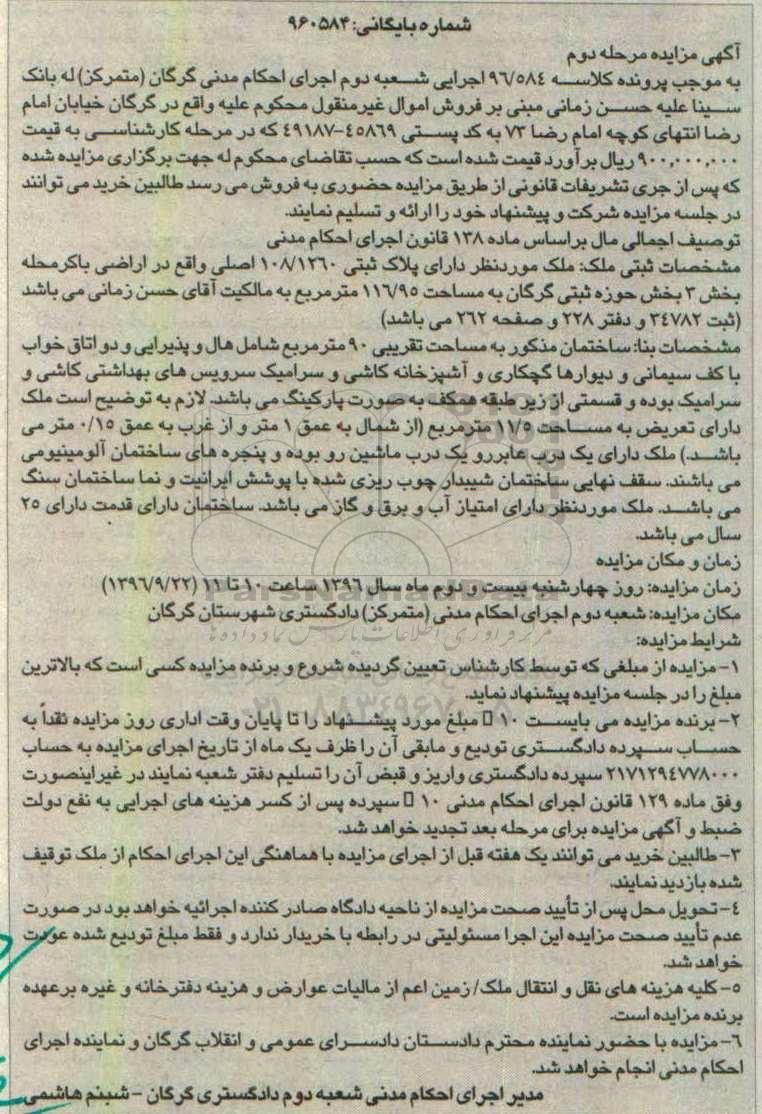 شماره بایگانی: ۹۶۰۵۸۴
آگهی مزایده مرحله دوم
به موجب پرونده کلاسه ۹۶/۵۸٤ اجرایی شعبه دوم اجرای احکام مدنی گرگان (متمرکز) له بانک
سینا علیه حسن زمانی مبنی بر فروش اموال غیرمنقول محکوم علیه واقع در گرگان خیابان امام
رضا انتهای کوچه امام رضا ۷۳ به کد پستی ٤۵۸٦۹-٤۹۱۸۷ که در مرحله کارشناسی به قیمت
۹۰۰,۰۰۰,۰۰۰ ریال برآورد قیمت شده است که حسب تقاضای محکوم له جهت برگزاری مزایده شده
که پس از جری تشریفات قانونی از طریق مزایده حضوری به فروش می رسد طالبین خرید می توانند
در جلسه مزایده شرکت و پیشنهاد خود را ارائه و تسلیم نمایند.
توصیف اجمالی مال براساس ماده ۱۳۸ قانون اجرای احکام مدنی
مشخصات ثبتی ملک: ملک موردنظر دارای پلاک ثبتی ۱۰۸/۱۲٦۰ اصلی واقع در اراضی باکرمحله
بخش ۳ بخش حوزه ثبتی گرگان به مساحت ۱۱٦/۹۵ مترمربع به مالکیت آقای حسن زمانی می باشد
(ثبت ۳٤۷۸۲ و دفتر ۲۲۸ و صفحه ۲٦۲ می باشد)
مشخصات بنا: ساختمان مذکور به مساحت تقریبی ۹۰ مترمربع شامل هال و پذیرایی و دو اتاق خواب
با کف سیمانی و دیوارها گچکاری و آشپزخانه کاشی و سرامیک سرویس های بهداشتی کاشی و
سرامیک بوده و قسمتی از زیر طبقه همکف به صورت پارکینگ می باشد. لازم به توضیح است ملک
دارای تعریض به مساحت ۱۱/۵ مترمربع (از شمال به عمق ۱ متر و از غرب به عمق ۰/۱۵ متر می
باشد.) ملک دارای یک درب عابررو یک درب ماشین رو بوده و پنجره های ساختمان آلومینیومی
می باشند. سقف نهایی ساختمان شیبدار چوب ریزی شده با پوشش ایرانیت و نما ساختمان سنگ
می باشد. ملک موردنظر دارای امتیاز آب و برق و گاز می باشد. ساختمان دارای قدمت دارای ۲۵
سال می باشد.
زمان و مکان مزایده
زمان مزایده: روز چهارشنبه بیست و دوم ماه سال ۱۳۹٦ ساعت ۱۰ تا ۱۱ (۱۳۹٦/۹/۲۲)
مکان مزایده: شعبه دوم اجرای احکام مدنی (متمرکز) دادگستری شهرستان گرگان
شرایط مزایده:
۱- مزایده از مبلغی که توسط کارشناس تعیین گردیده شروع و برنده مزایده کسی است که بالاترین
مبلغ را در جلسه مزایده پیشنهاد نماید.
۲- برنده مزایده می بایست ۱۰ مبلغ مورد پیشنهاد را تا پایان وقت اداری روز مزایده نقداً به
حساب سپرده دادگستری تودیع و مابقی آن را ظرف یک ماه از تاریخ اجرای مزایده به حساب
۲۱۷۱۲۹٤۷۷۸۰۰۰ سپرده دادگستری واریز و قبض آن را تسلیم دفتر شعبه نمایند در غیراینصورت
وفق ماده ۱۲۹ قانون اجرای احکام مدنی ۱۰ سپرده پس از کسر هزینه های اجرایی به نفع دولت
ضبط و آگهی مزایده برای مرحله بعد تجدید خواهد شد.
۳- طالبین خرید می توانند یک هفته قبل از اجرای مزایده با هماهنگی این اجرای احکام از ملک توقیف
شده بازدید نمایند.
٤- تحویل محل پس از تأیید صحت مزایده از ناحیه دادگاه صادر کننده اجرائیه خواهد بود در صورت
عدم تأیید صحت مزایده این اجرا مسئولیتی در رابطه با خریدار ندارد و فقط مبلغ تودیع شده عودت
خواهد شد.
۵- کلیه هزینه های نقل و انتقال ملک/ زمین اعم از مالیات عوارض و هزینه دفترخانه و غیره برعهده
برنده مزایده است.
٦- مزایده با حضور نماینده محترم دادستان دادسرای عمومی و انقلاب گرگان و نماینده اجرای
احکام مدنی انجام خواهد شد.
مدیر اجرای احکام مدنی شعبه دوم دادگستری گرگان - شبنم هاشمی